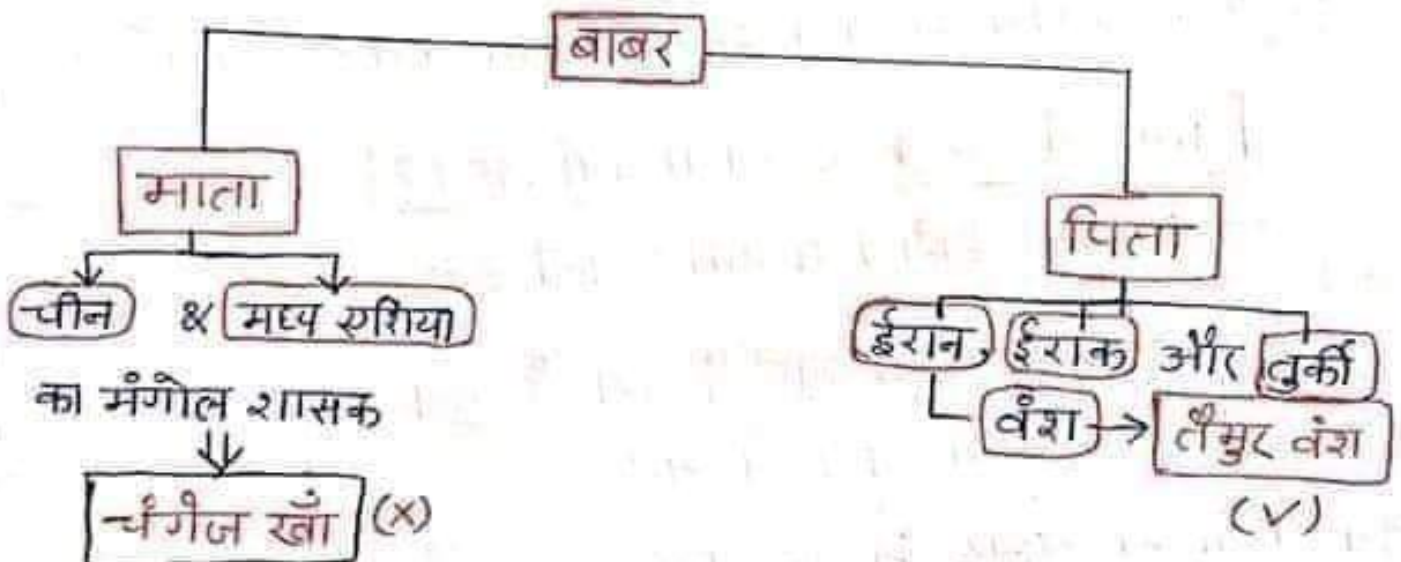 बाबर
माता
पिता
चीन & मध्य एशिया
का मंगोल शासक
चंगेज खाँ (x)
ईरान, ईराक और तुर्की
वंश → तैमुर वंश
(✓)